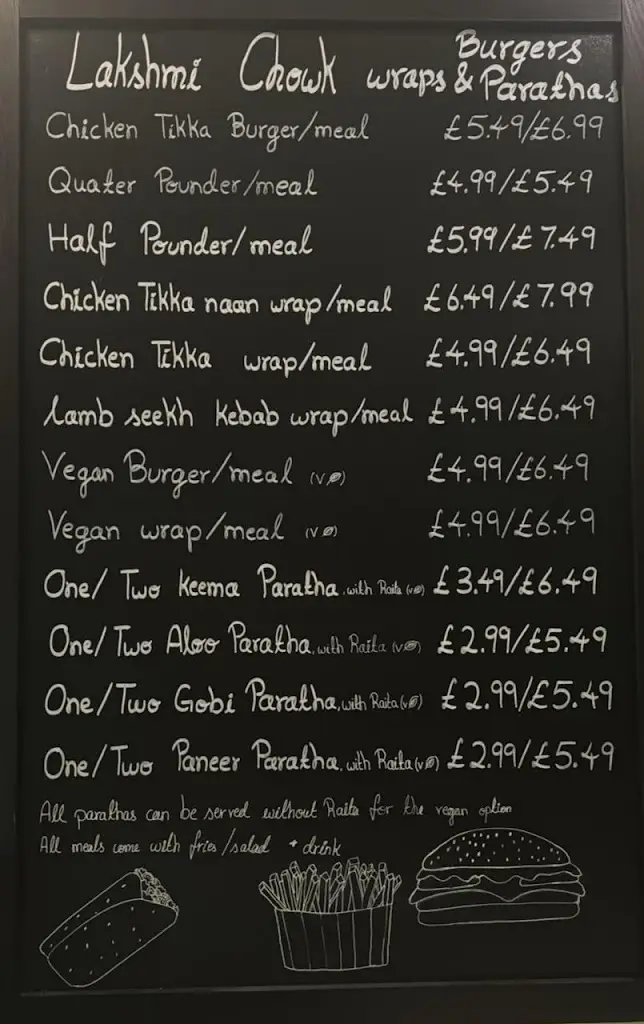 Lakshmi Chowk wraps & Burgers Parathas
Chicken Tikka Burger/meal £5.49/£6.99
Quater Pounder/meal £4.99/£5.49
Half Pounder/meal £5.99/£7.49
Chicken Tikka naan wrap/meal £6.49/£7.99
Chicken Tikka wrap/meal £4.99/£6.49
Lamb seekh kebab wrap/meal £4.99/£6.49
Vegan Burger/meal (V) £4.99/£6.49
Vegan wrap/meal (V) £4.99/£6.49
One/Two Keema Paratha, with Raita (v) £3.49/£6.49
One/Two Aloo Paratha, with Raita (v) £2.99/£5.49
One/Two Gobi Paratha, with Raita (v) £2.99/£5.49
One/Two Paneer Paratha, with Raita (v) £2.99/£5.49
All parathas can be served without Raita for the vegan option
All meals come with fries/salad + drink